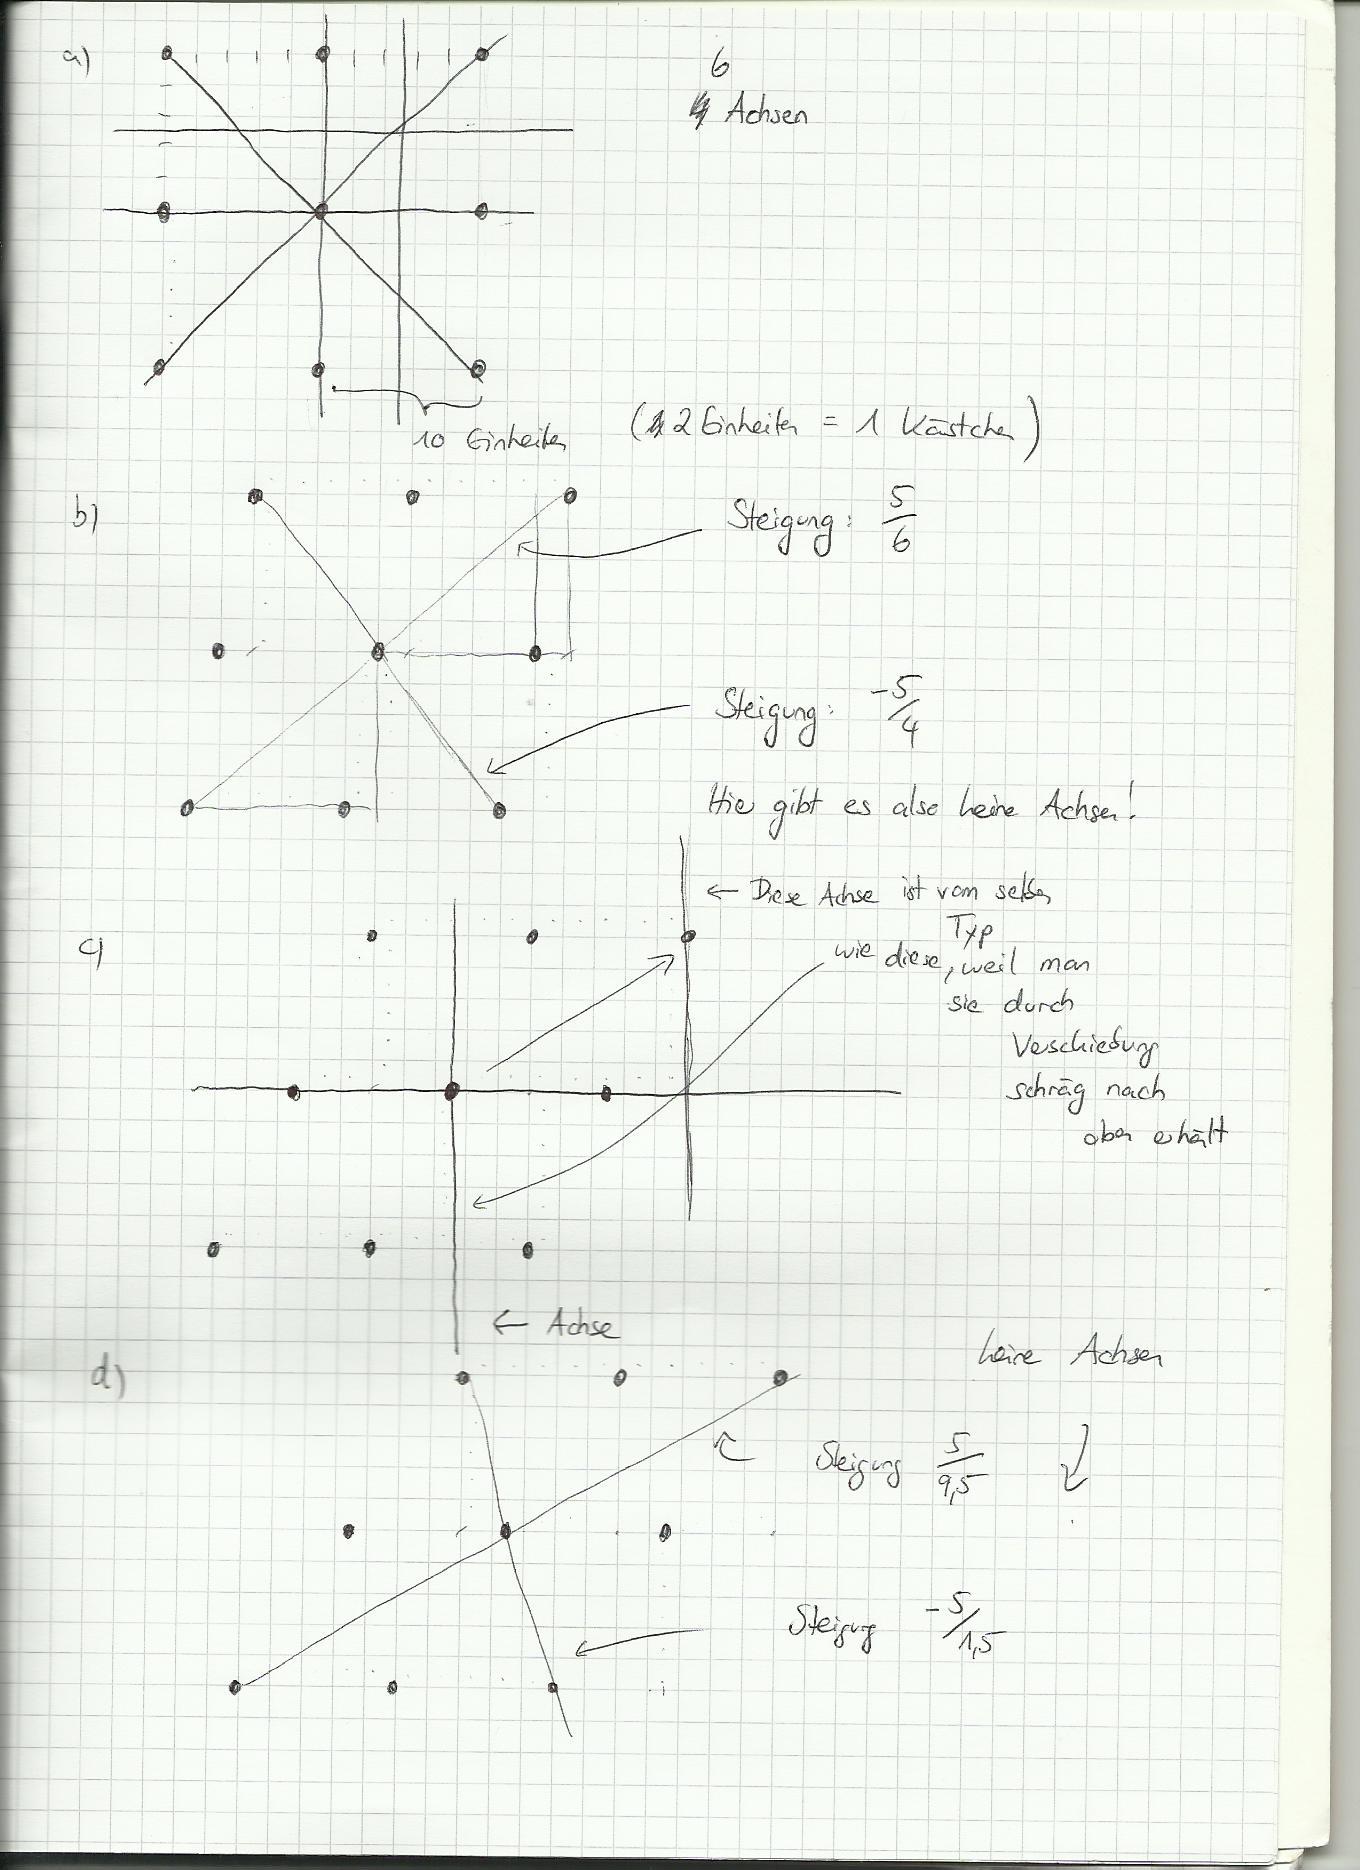 a)
6
Achsen
10 Einheiten
(2 Einheiten = 1 Kästchen)
b)
Steigung: 5/6
Steigung: -5/4
Hier gibt es also keine Achsen!
c)
← Diese Achse ist vom selben
Typ
wie diese, weil man
sie durch
Verschiebung
schräg nach
oben erhält
← Achse
d)
keine Achsen
Steigung 5/9,5
Steigung -5/1,5